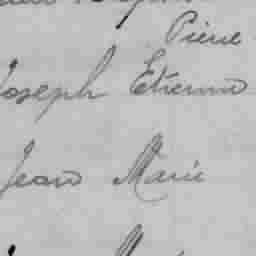 Pierre
Joseph Etienne
Jean Marie